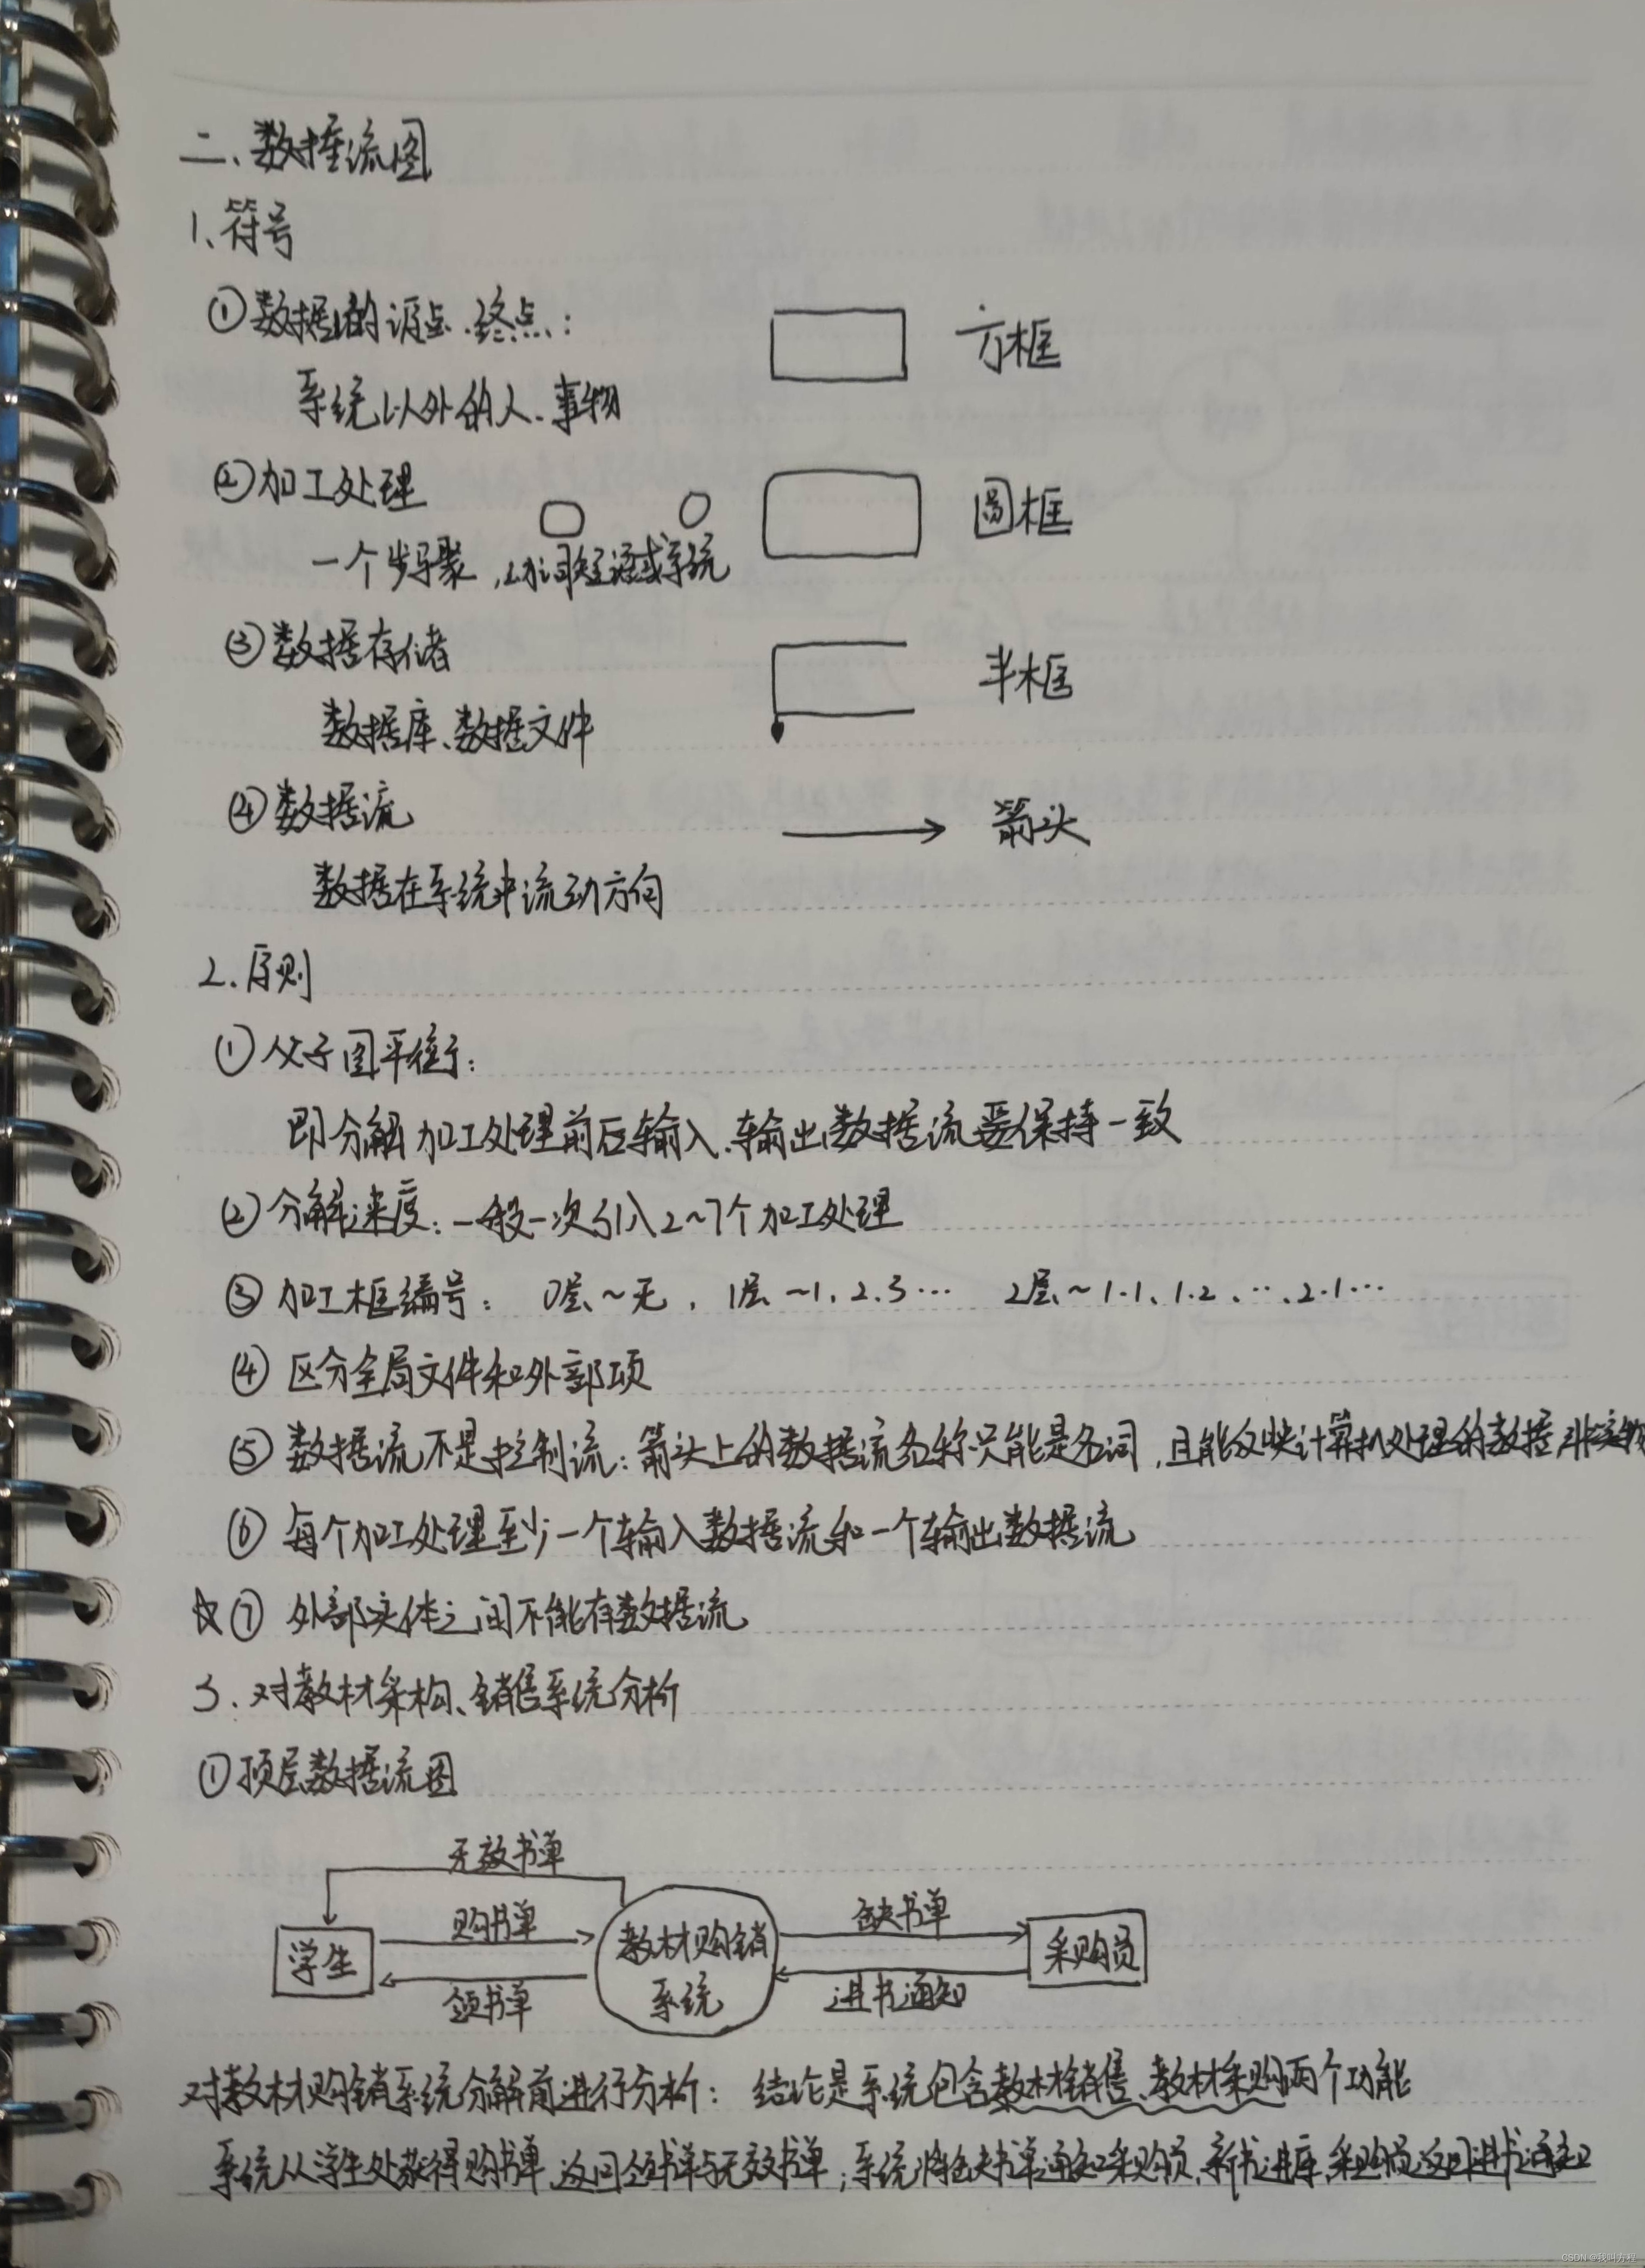 二、数据流图
1、符号
①数据的源点、终点： 方框
系统以外的人、事物
②加工处理 圆框
一个步骤，动词短语或系统
③数据存储 半框
数据库、数据文件
④数据流 箭头
数据在系统中流动方向
2.原则
①父子图平衡：
即分解加工处理前后输入、输出数据流要保持一致
②分解速度：一般一次引入2~7个加工处理
③加工框编号： 0层~无， 1层~1、2、3… 2层~1.1、1.2、…、2.1…
④区分全局文件和外部项
⑤数据流不是控制流：箭头上的数据流名称只能是名词，且能反映计算机处理的数据非实物
⑥每个加工处理至少一个输入数据流和一个输出数据流
☆⑦外部实体之间不能存数据流
3.对教材采构、销售系统分析
①顶层数据流图
无效书单
购书单 缺书单
学生 教材购销系统 采购员
领书单 进书通知
对教材购销系统分解前进行分析： 结论是系统包含教材销售、教材采购两个功能
系统从学生处获得购书单，返回领书单与无效书单；系统将缺书单通知采购员，新书进库，采购员返回进书通知
CSDN @我叫方程